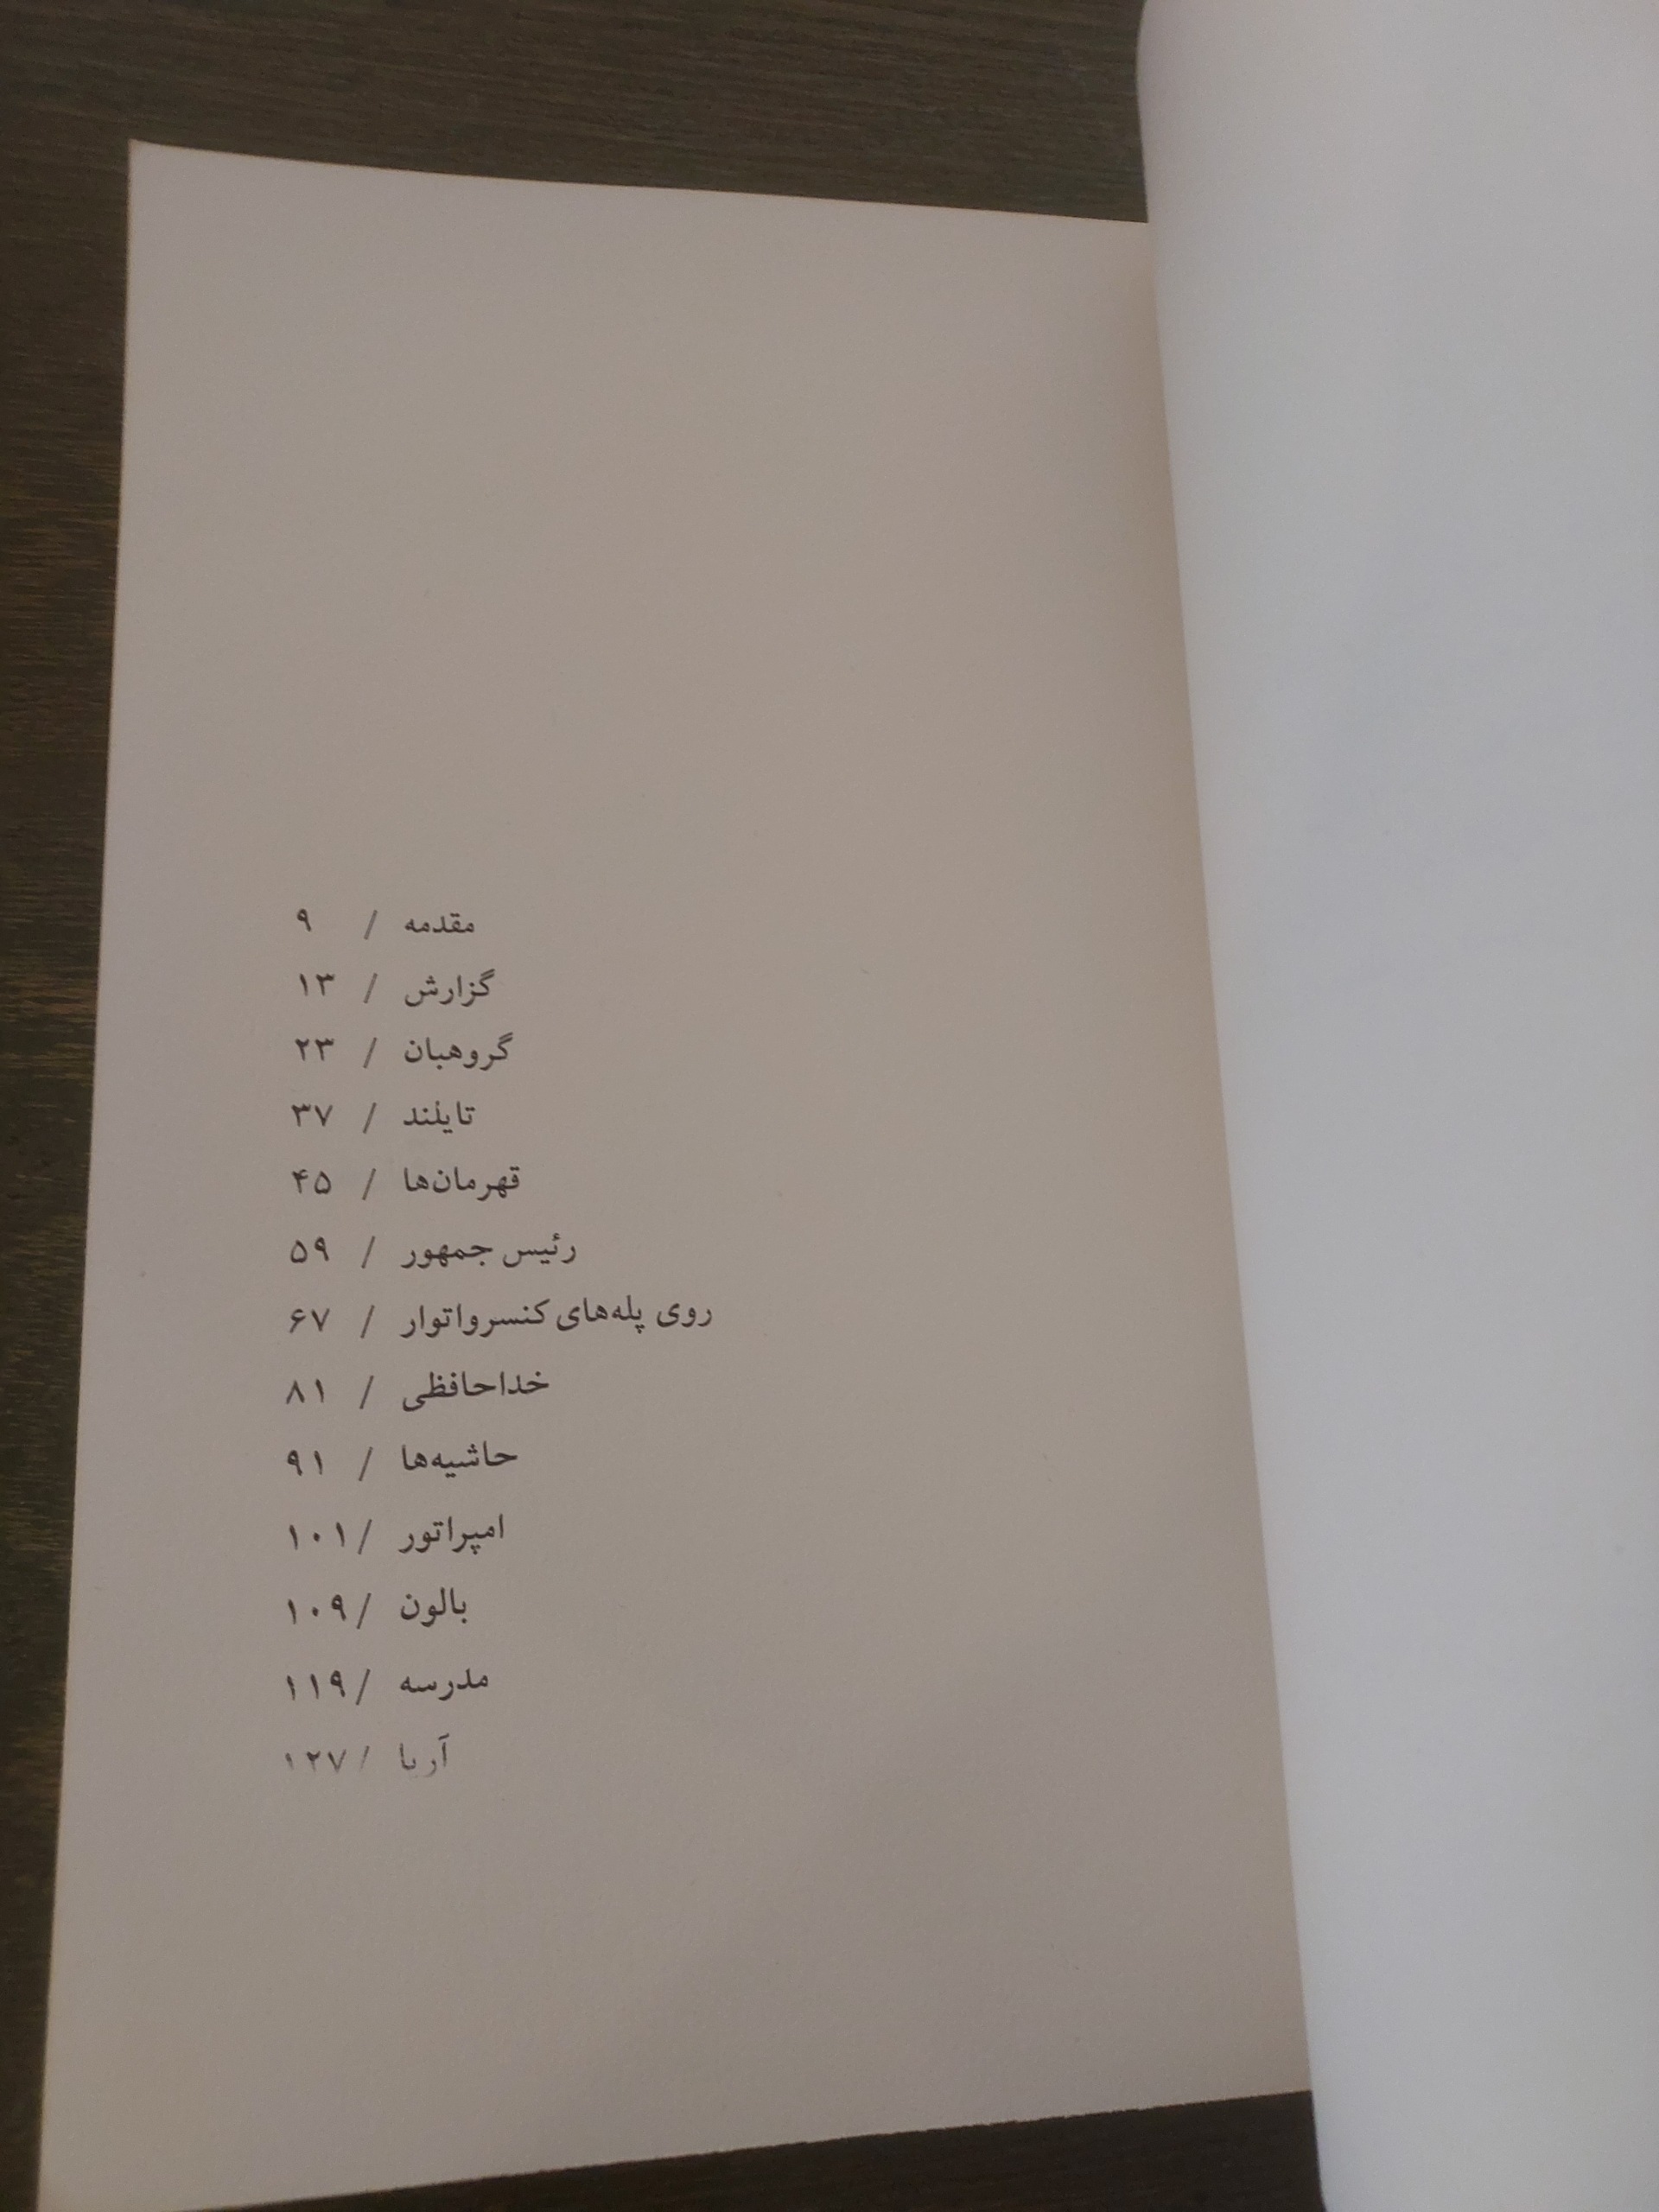 مقدمه / ۹
گزارش / ۱۳
گروهبان / ۲۳
تایلند / ۳۷
قهرمان‌ها / ۴۵
رئیس جمهور / ۵۹
روی پله‌های کنسرواتوار / ۶۷
خداحافظی / ۸۱
حاشیه‌ها / ۹۱
امپراتور / ۱۰۱
بالون / ۱۰۹
مدرسه / ۱۱۹
/ ۱۲۷